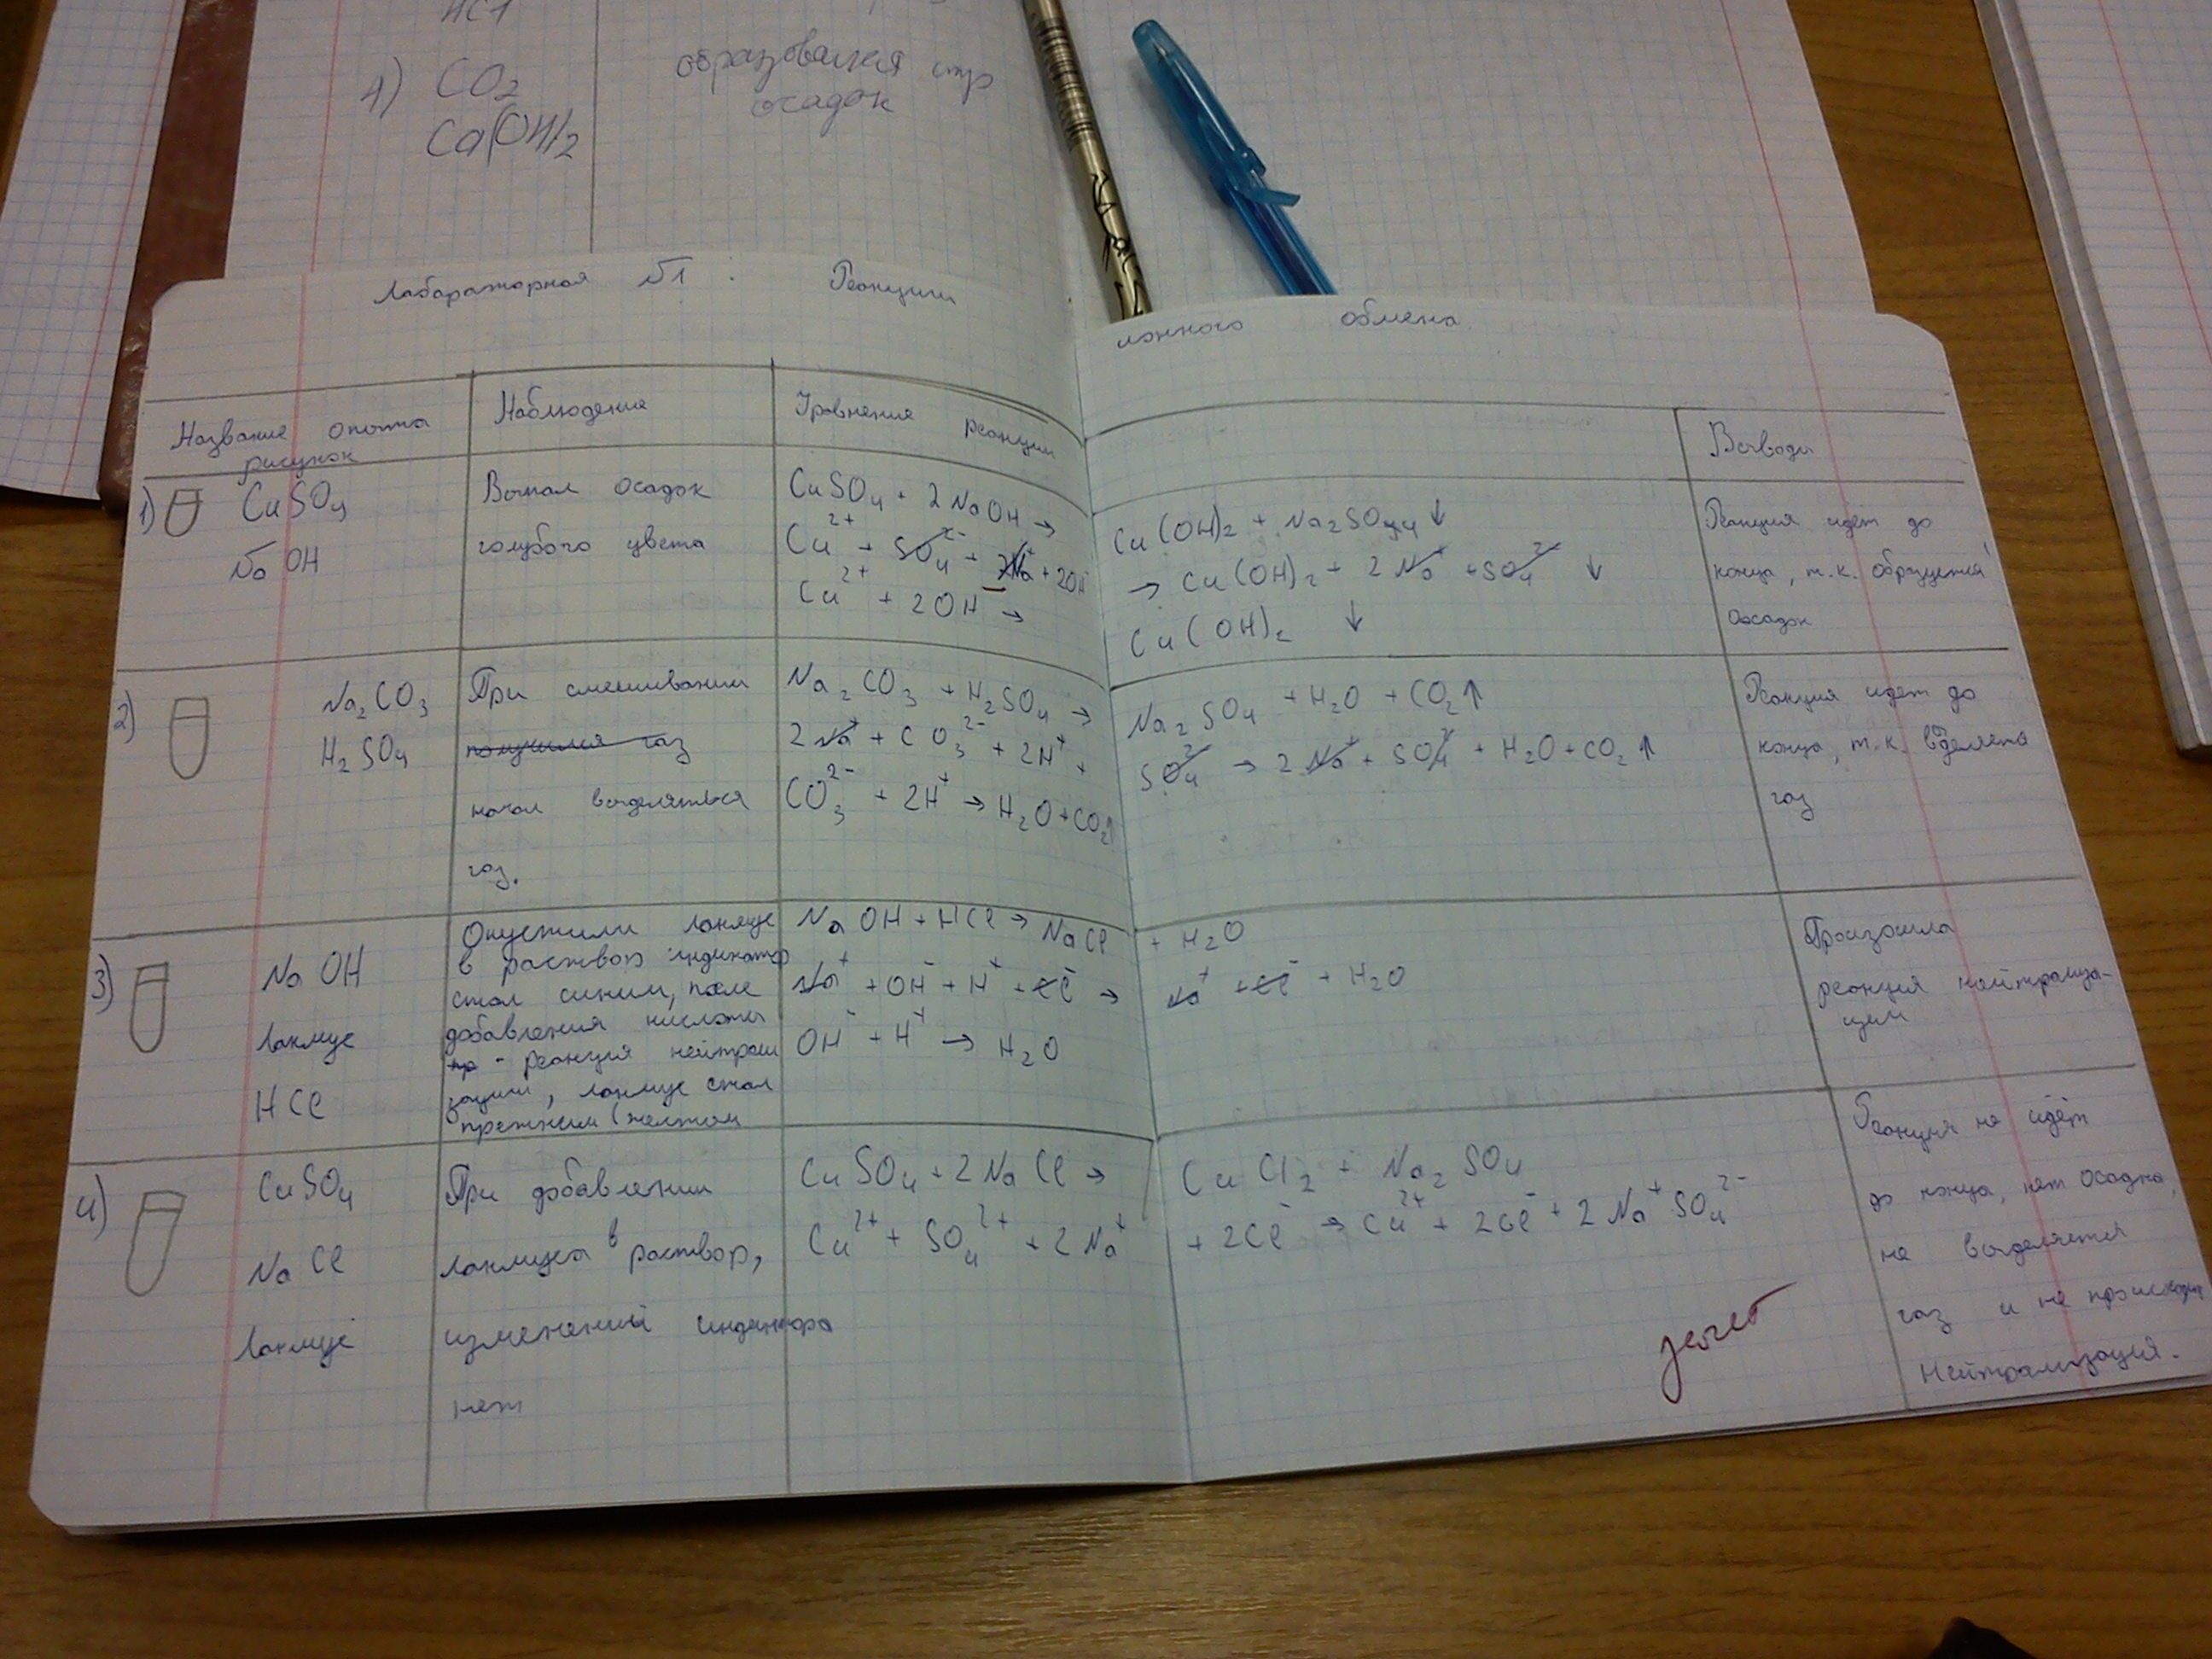 HCl
4) CO2
Ca(OH)2
образовался
осадок
Лабараторная №1. Реакции ионного обмена.
Название опыта рисунок
Наблюдение
Уравнение реакции
Выводы
1) CuSO4
NaOH
Выпал осадок
голубого цвета
CuSO4 + 2NaOH → Cu(OH)2 + Na2SO4 ↓
Cu2+ + SO42- + 2Na+ + 2OH- → Cu(OH)2 + 2Na+ + SO42- ↓
Cu2+ + 2OH- → Cu(OH)2 ↓
Реакция идет до
конца, т.к. образуется
осадок
2) Na2CO3
H2SO4
При смешивании
получился газ
начал выделяться
газ.
Na2CO3 + H2SO4 → Na2SO4 + H2O + CO2↑
2Na+ + CO32- + 2H+ + SO42- → 2Na+ + SO42- + H2O + CO2↑
CO32- + 2H+ → H2O + CO2↑
Реакция идет до
конца, т.к. вделяется
газ
3) NaOH
Лакмус
HCl
Опустили лакмус
в раствор индикатор
стал синим, после
добавления кислоты
пр - реакция нейтрали
зации, лакмус стал
прежним (желтым
NaOH + HCl → NaCl + H2O
Na+ + OH- + H+ + Cl- → Na+ + Cl- + H2O
OH- + H+ → H2O
Произошла
реакция нейтрализа-
ции
4) CuSO4
NaCl
Лакмус
При добавлении
лакмуса в раствор,
изменений индикатора
нет
CuSO4 + 2NaCl → CuCl2 + Na2SO4
Cu2+ + SO42+ + 2Na+ + 2Cl- → Cu2+ + 2Cl- + 2Na+ SO42-
Реакция не идёт
до конца, нет осадка,
не выделяется
газ и не происходит
Нейтрализация.
зачет